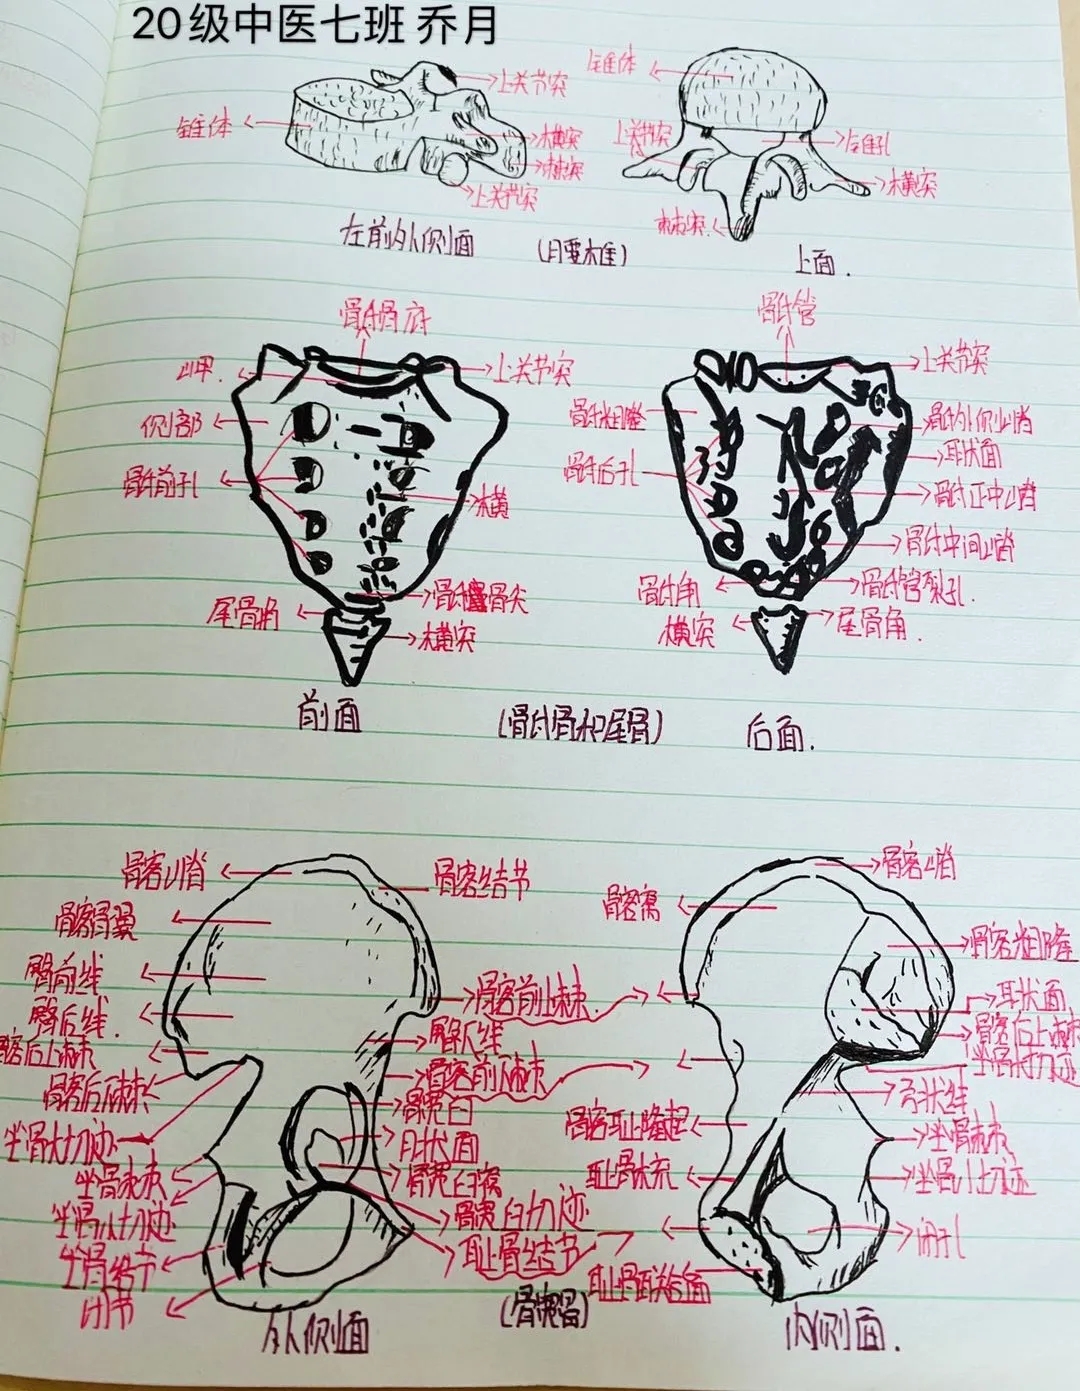 20级中医七班 乔月
上关节突
锥体
横突
棘突
上关节突
左前外侧面
(腰椎)
锥体
上关节突
后锥孔
横突
棘突
上面.
骶骨底
岬
上关节突
侧部
骶前孔
横
骶骨尖
尾骨角
横突
前面
(骶骨和尾骨)
骶管
上关节突
骶粗隆
骶外侧嵴
耳状面
骶后孔
骶正中嵴
骶中间嵴
骶角
骶管裂孔.
横突
尾骨角.
后面.
髂嵴
髂结节
髂骨翼
臀前线
臀后线.
髂后上棘
髂后下棘
坐骨大切迹
坐骨棘
坐骨小切迹
坐骨结节
闭节
髂前上棘
臀下线
髂前下棘
髋臼
月状面
髋臼窝
髋臼切迹
耻骨结节
外侧面
(髋骨)
髂嵴
髂窝
髂粗隆
耳状面
髂后上棘
坐骨大切迹
弓状线
髂耻隆起
坐骨棘
耻骨梳
坐骨小切迹
闭孔
耻骨联合面
内侧面.